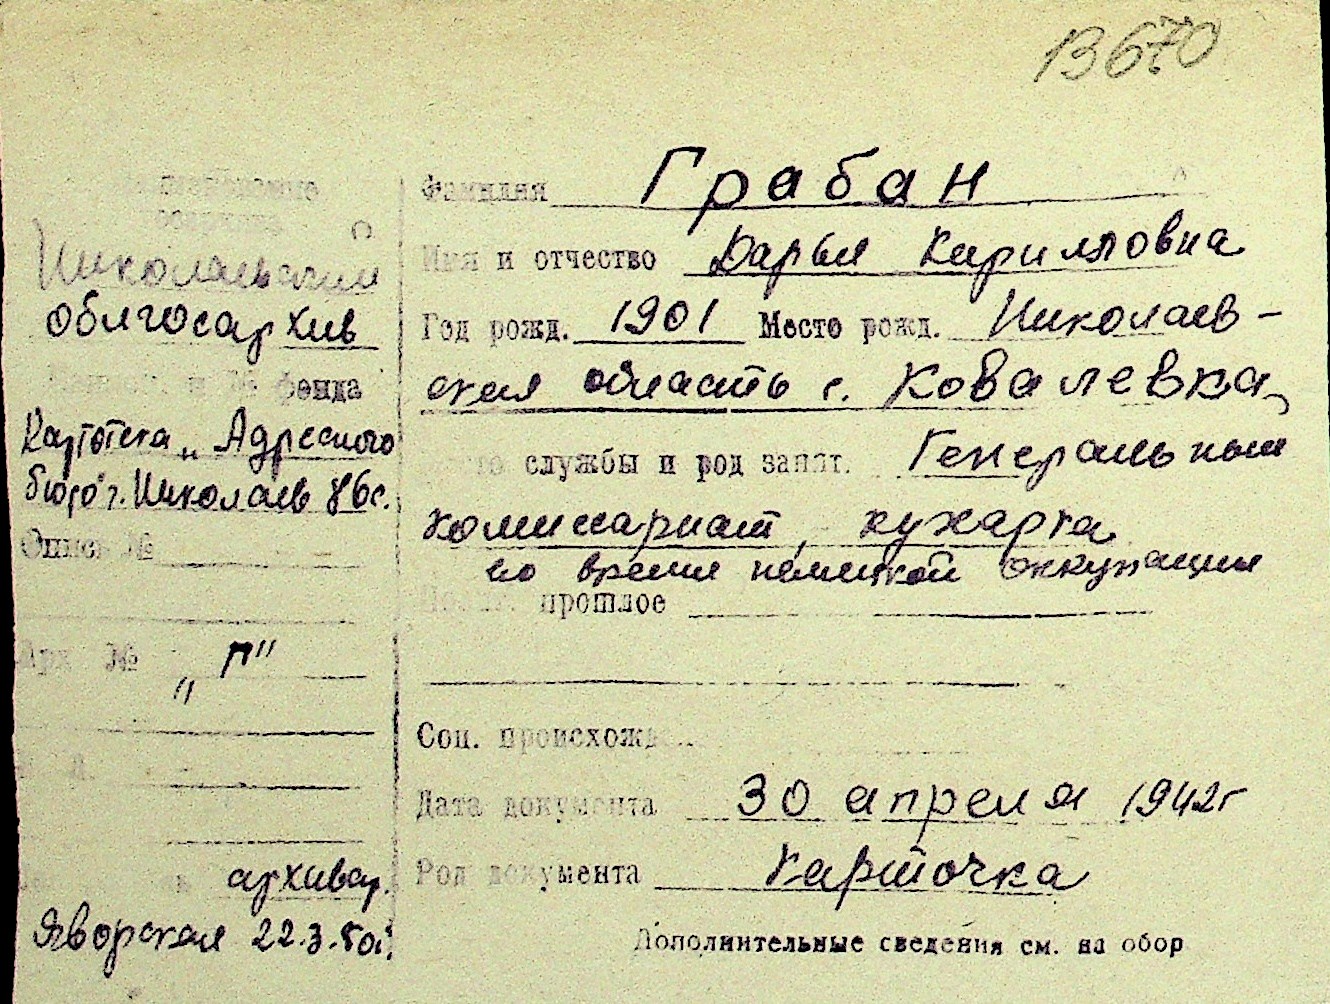 13670
Фамилия Грабан
Имя и отчество Дарья Кирилловна
Год рожд. 1901 Место рожд. Николаев-
ская область с. Ковалевка,
службы и род занят. Генеральный
комиссариат, кухарка
во время немецкой оккупации
прошлое
Соц. происхожд.
Дата документа 30 апреля 1942г
Род документа Карточка
Дополнительные сведения см. на обор
Николаевский
облгосархив
и № фонда
Картотека „Адресного
бюро" г. Николаев
Опись №
Арх. № „Г"
архивар.
Яворская 22.3.50г.